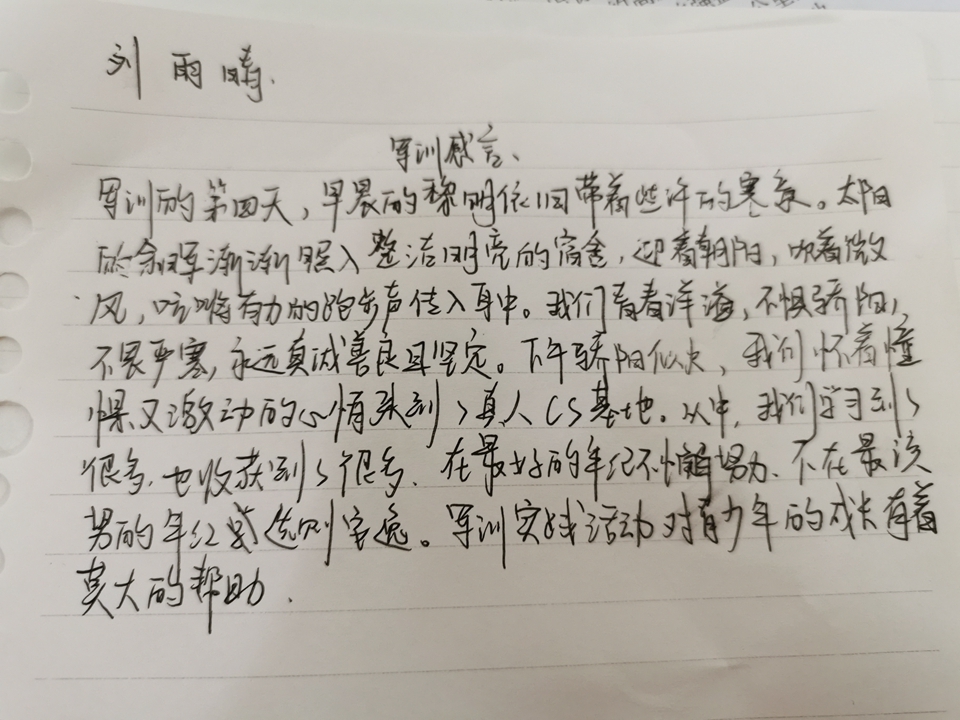 刘雨晴.
军训感言、
军训的第四天，早晨的黎明依旧带着些许的寒气。太阳
的余晖渐渐照入整洁明亮的宿舍，迎着朝阳，吹着微
风，咛嘹有力的跑步声传入耳中。我们青春洋溢，不惧骄阳，
不畏严寒，永远真诚善良且坚定。下午骄阳似火，我们怀着憧
憬又激动的心情来到了真人CS基地。从中，我们学习到了
很多，也收获到了很多．在最好的年纪不懈努力、不在最该
努的年纪或选则安逸。军训实践活动对青少年的成长有着
莫大的帮助．